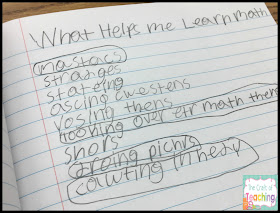 What Helps me Learn Math
mastacs
stratges
stateing
ascing cwestens
yosing thens
looking over etr math thens
shors
droing pichrs
cawting in
Teaching